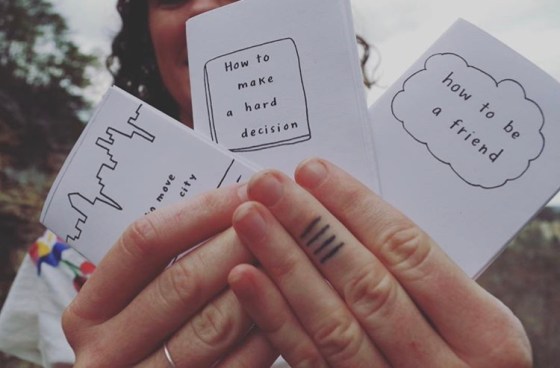 How to
make
a hard
decision
how to be
a friend
move
city